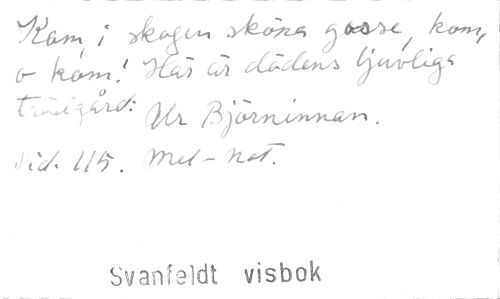 Kom, i skogen sköna gosse, kom,
o kom! Här är dödens ljuvliga
trädgård: Ur Björninnan.
Sid. 115. Mel-not.
Svanfeldt visbok